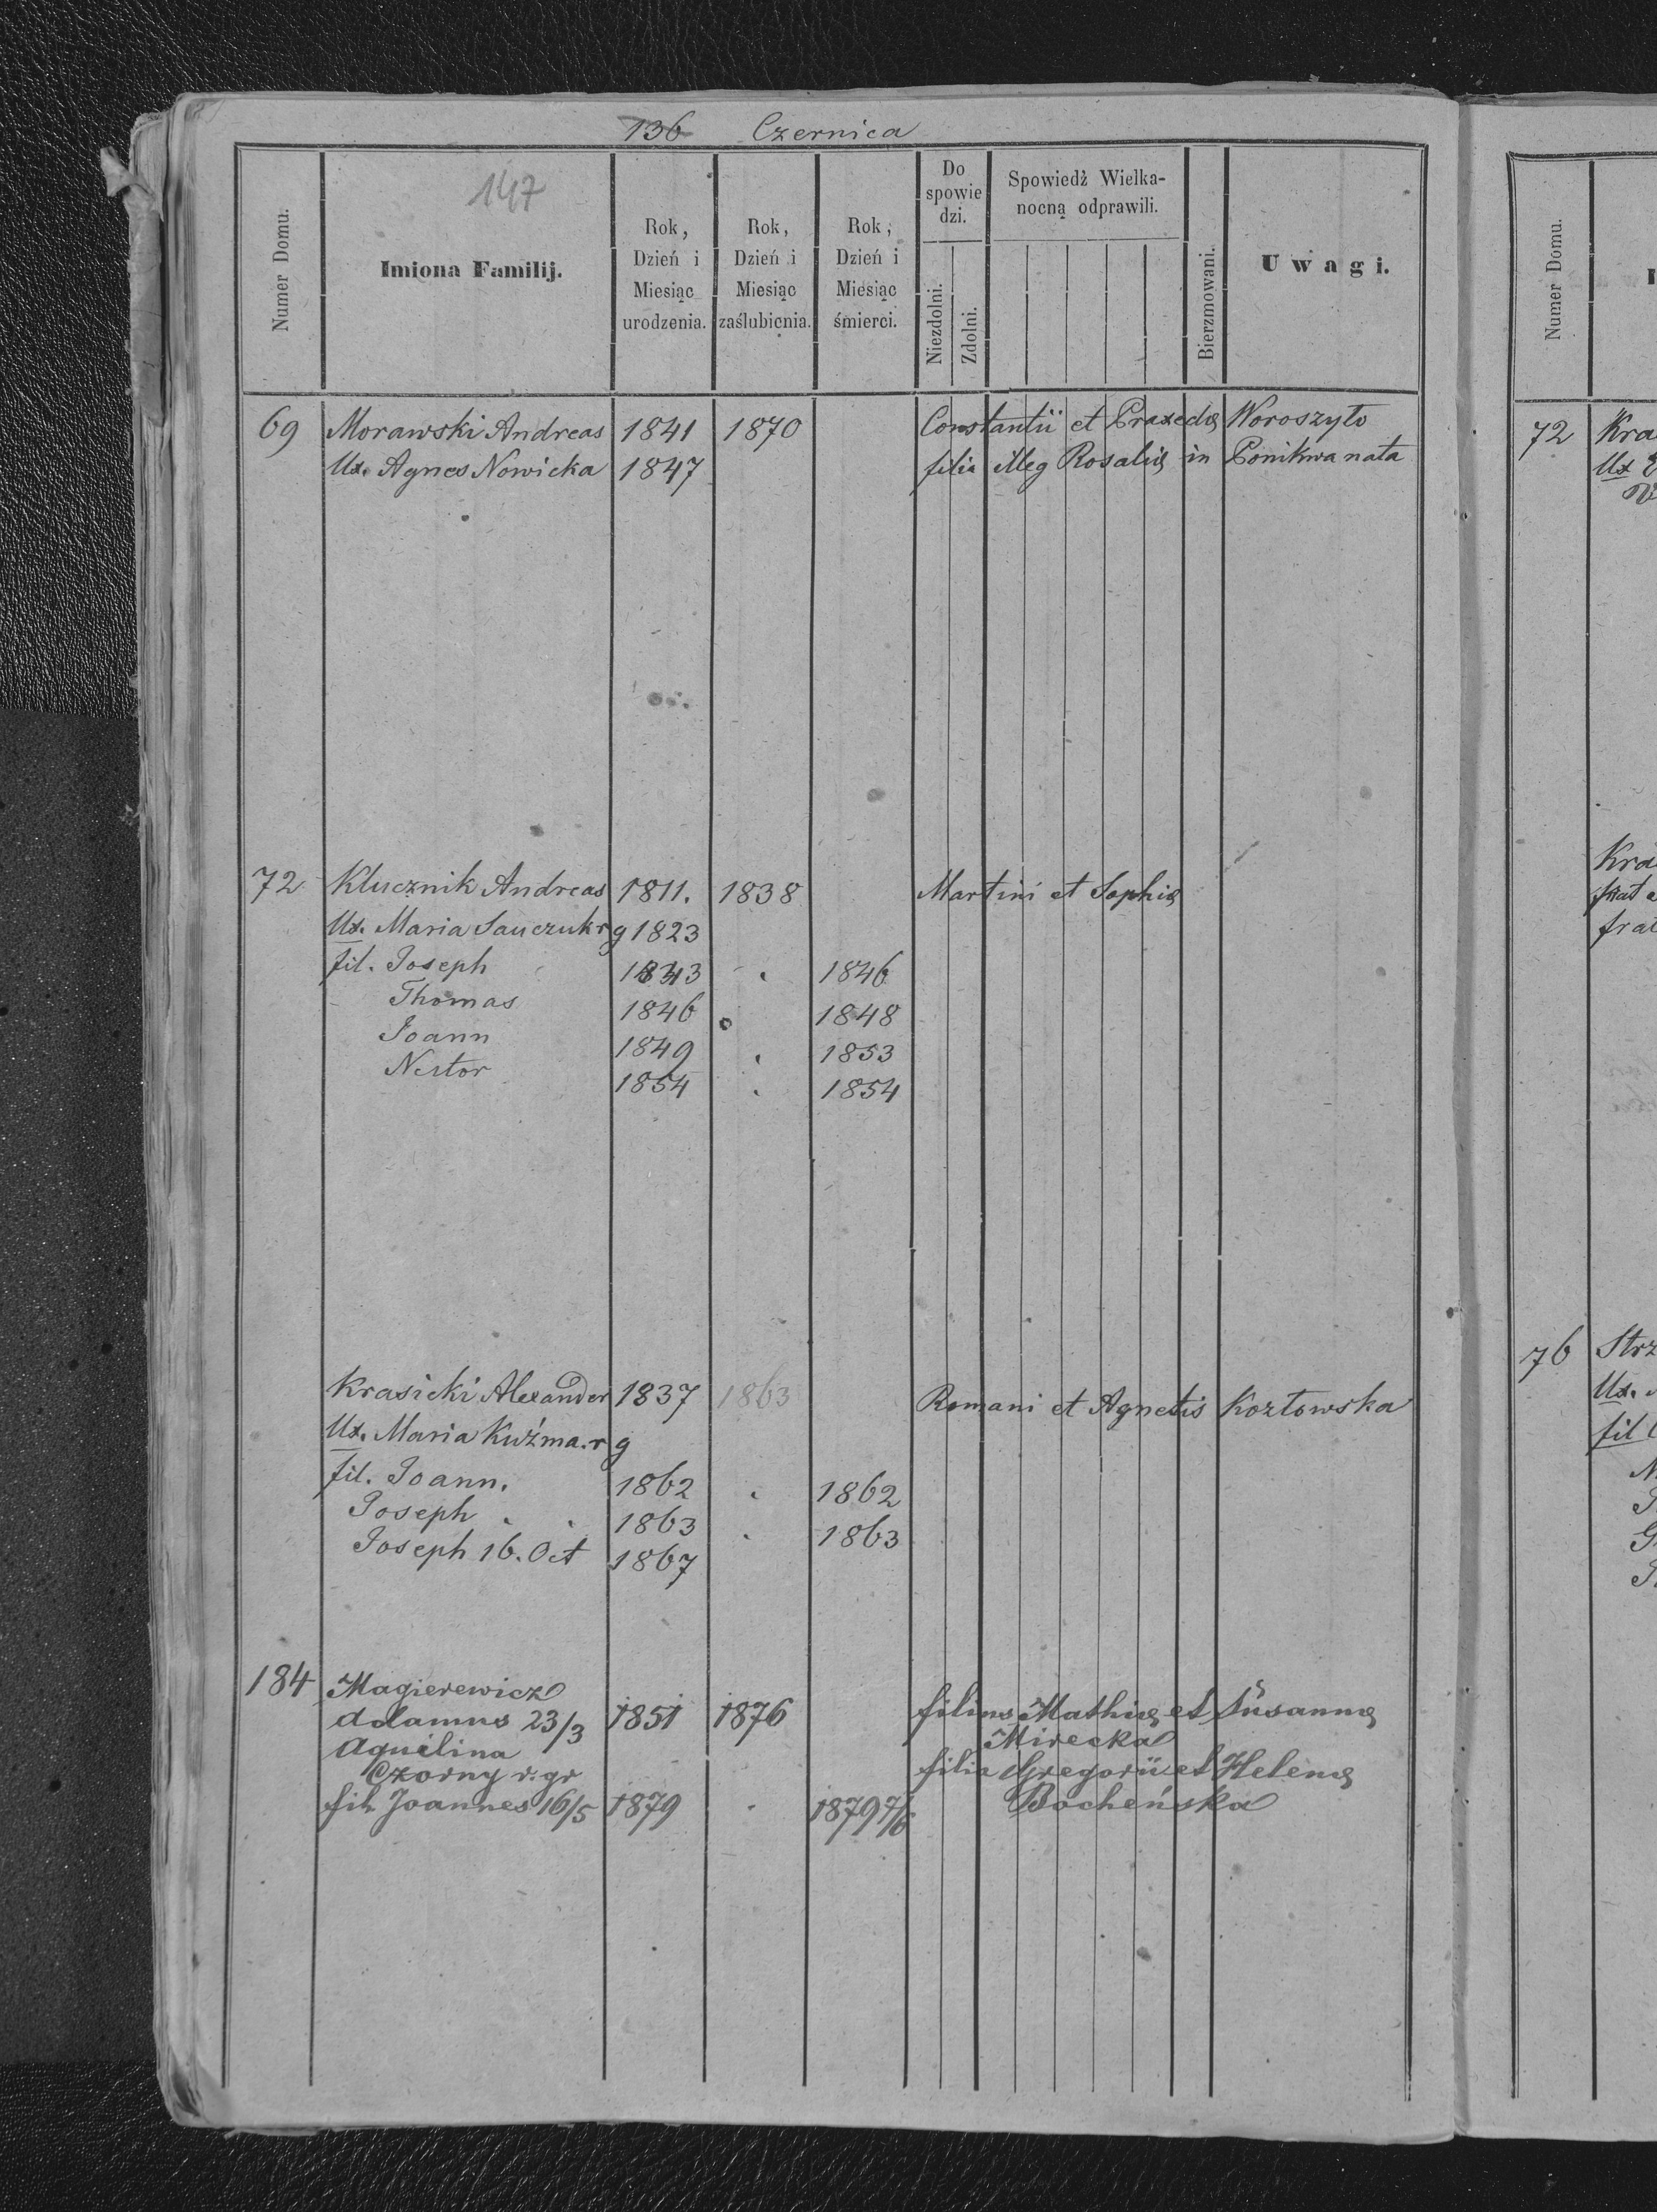 136 Czernica
147
Numer Domu.
Imiona Familij.
Rok, Dzień i Miesiąc urodzenia.
Rok, Dzień i Miesiąc zaślubienia.
Rok, Dzień i Miesiąc śmierci.
Do spowie dzi.
Niezdolni.
Zdolni.
Spowiedź Wielka-
nocną odprawili.
Bierzmowani.
Uwagi.
69 Morawski Andreas 1841 1870 Constantii et Praxedę Woroszyło
Ux. Agnes Nowicka 1847 filia illeg Rosalię in Ponikwa nata
72 Klucznik Andreas 1811. 1838 Martini et Sophię
Ux. Maria Sauczuk r g 1823
fil. Joseph 1843 1846
Thomas 1846 1848
Joann 1849 1853
Nestor 1854 1854
Krasicki Alexander 1837 1863 Romani et Agnetis Kozłowska
Ux. Maria Kuźma. r g
fil. Joann. 1862 1862
Joseph 1863 1863
Joseph 16. Oct 1867
184 Magierewicz
Adamus 23/3 1851 1876 filius Mathię et Susannę
Mirecka
Aquilina
Czorny r. gr filia Gregorii et Helenę
fil. Joannes 16/5 1879 1879 7/6 Bocheńska
Numer Domu.
72 Kra
Ux
Kra
frat
fra
76 Strz
Ux.
fil